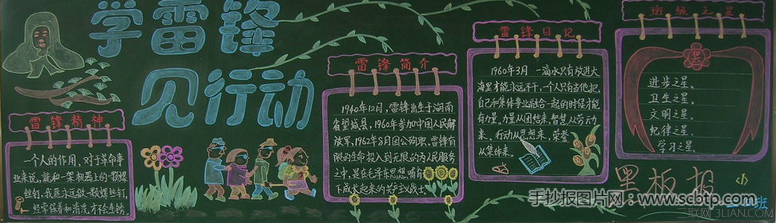 学雷锋
见行动
雷锋精神
一个人的作用,对于革命事
业来说,就如一架机器上的一颗螺
丝钉。我愿永远做一颗螺丝钉。
雷锋简介
1940年12月,雷锋出生于湖南
省望城县,1960年参加中国人民解
放军,1962年8月因公殉职,雷锋有
限的生命投入到无限的为人民服务
之中,是在毛泽东思想哺育
下成长起来的共产主义战士。
雷锋日记
1960年3月 一滴水只有放进大
海里才能永远不干,一个人只有当他把
自己和集体事业融合一起的时候才能有
力量。力量从团结来,智慧从劳动
来,行动从思想来,荣誉
从集体来。
班级之星
进步之星、
卫生之星、
文明之星、
纪律之星、
学习之星。
黑板报
手抄报图片网:www.scbtp.com